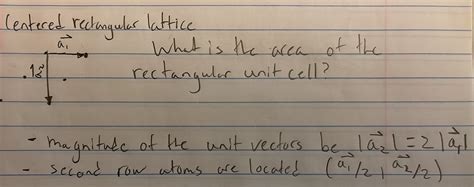 Centered rectangular lattice
a⃗₁
What is the area of the
rectangular unit cell?
- magnitude of the unit vectors be |a⃗₂| = 2|a⃗₁|
- second row atoms are located (a⃗₁/2, a⃗₂/2)